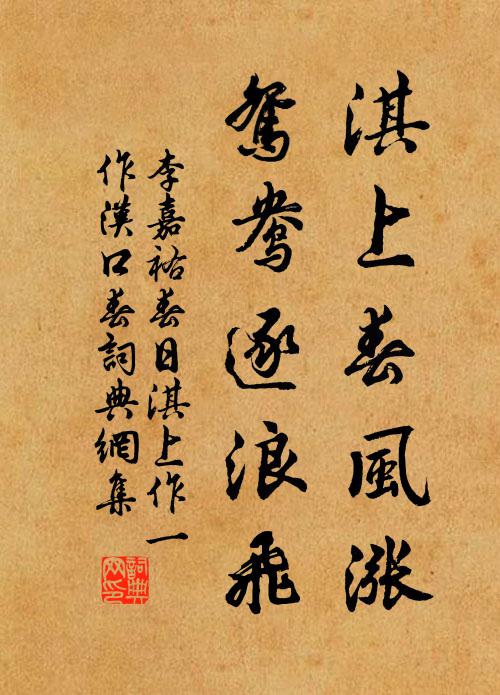 淇上春風漲
鴛鴦逐浪飛
李嘉祐春日淇上作一
作漢口春詞典網集
詞典
网印